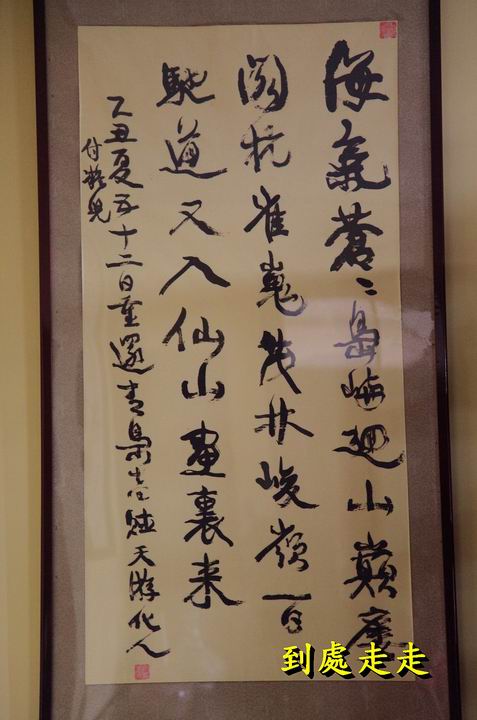 海氣蒼〻島嶼迴山巔
閣抗崔嵬茂林峻嶺百
馳道又入仙山畫裏来
乙丑夏五十二日重還青島喜賦天游化人
付兒
到處走走